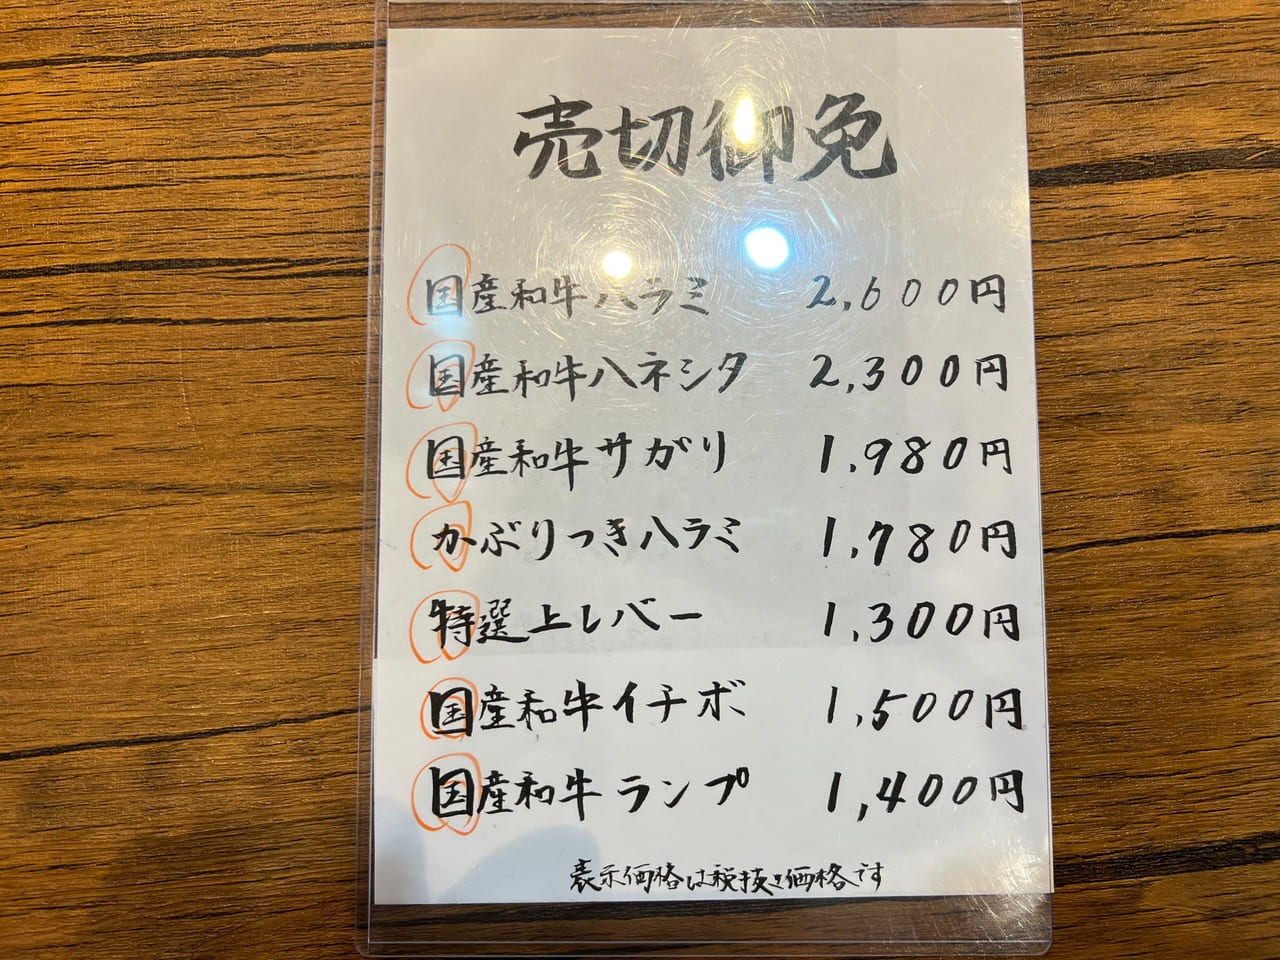 売切御免
国産和牛ハラミ 2,600円
国産和牛ハネシタ 2,300円
国産和牛サガリ 1,980円
かぶりつきハラミ 1,780円
特選上レバー 1,300円
国産和牛イチボ 1,500円
国産和牛ランプ 1,400円
表示価格は税抜き価格です